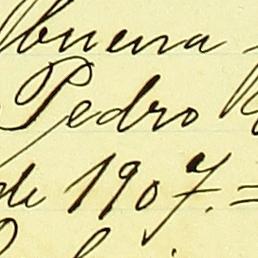 buena
Pedro
de 1907. =